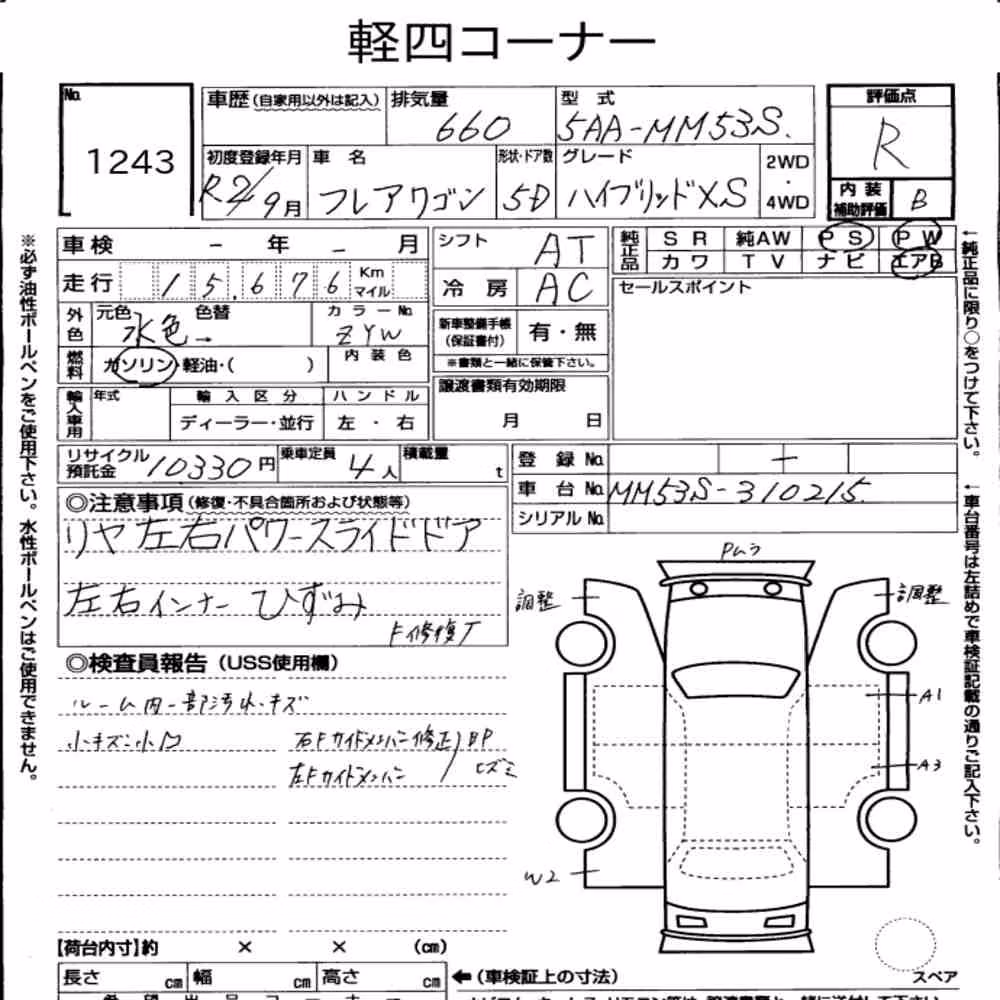 軽四コーナー
No. 1243
車歴(自家用以外は記入) 排気量 660 型式 5AA-MM53S.
初度登録年月 R2/9月 車名 フレアワゴン 形状・ドア数 5D グレード ハイブリッドXS 2WD・4WD
評価点 R
内装補助評価 B
車検 - 年 - 月
走行 15,676 Km マイル
外色 元色 水色 色替 カラーNo. ZYW
燃料 ガソリン・軽油・( ) 内装色
輸入車用 年式 輸入区分 ディーラー・並行 ハンドル 左・右
シフト AT
冷房 AC
新車整備手帳(保証書付) 有・無
※書類と一緒に保管下さい。
譲渡書類有効期限
月 日
純正品 SR 純AW PS PW
カワ TV ナビ エアB
セールスポイント
リサイクル預託金 10330円 乗車定員 4人 積載量 t
登録No. -
車台No. MM53S-310215.
シリアルNo.
◎注意事項(修復・不具合箇所および状態等)
リヤ左右パワースライドドア
左右インナーひずみ
F修復了
◎検査員報告(USS使用欄)
ルーム内一部汚れ・キズ
小キズ・小凹 右Fサイドメンバー修正
左Fサイドメンバー
BPヒズミ
Pムラ
調整 調整
A1
A3
W2
【荷台内寸】約 × × (cm)
長さ cm 幅 cm 高さ cm ←(車検証上の寸法)
スペア
※必ず油性ボールペンをご使用下さい。水性ボールペンはご使用できません。
←純正品に限り○をつけて下さい。
←車台番号は左詰めで車検証記載の通りご記入下さい。